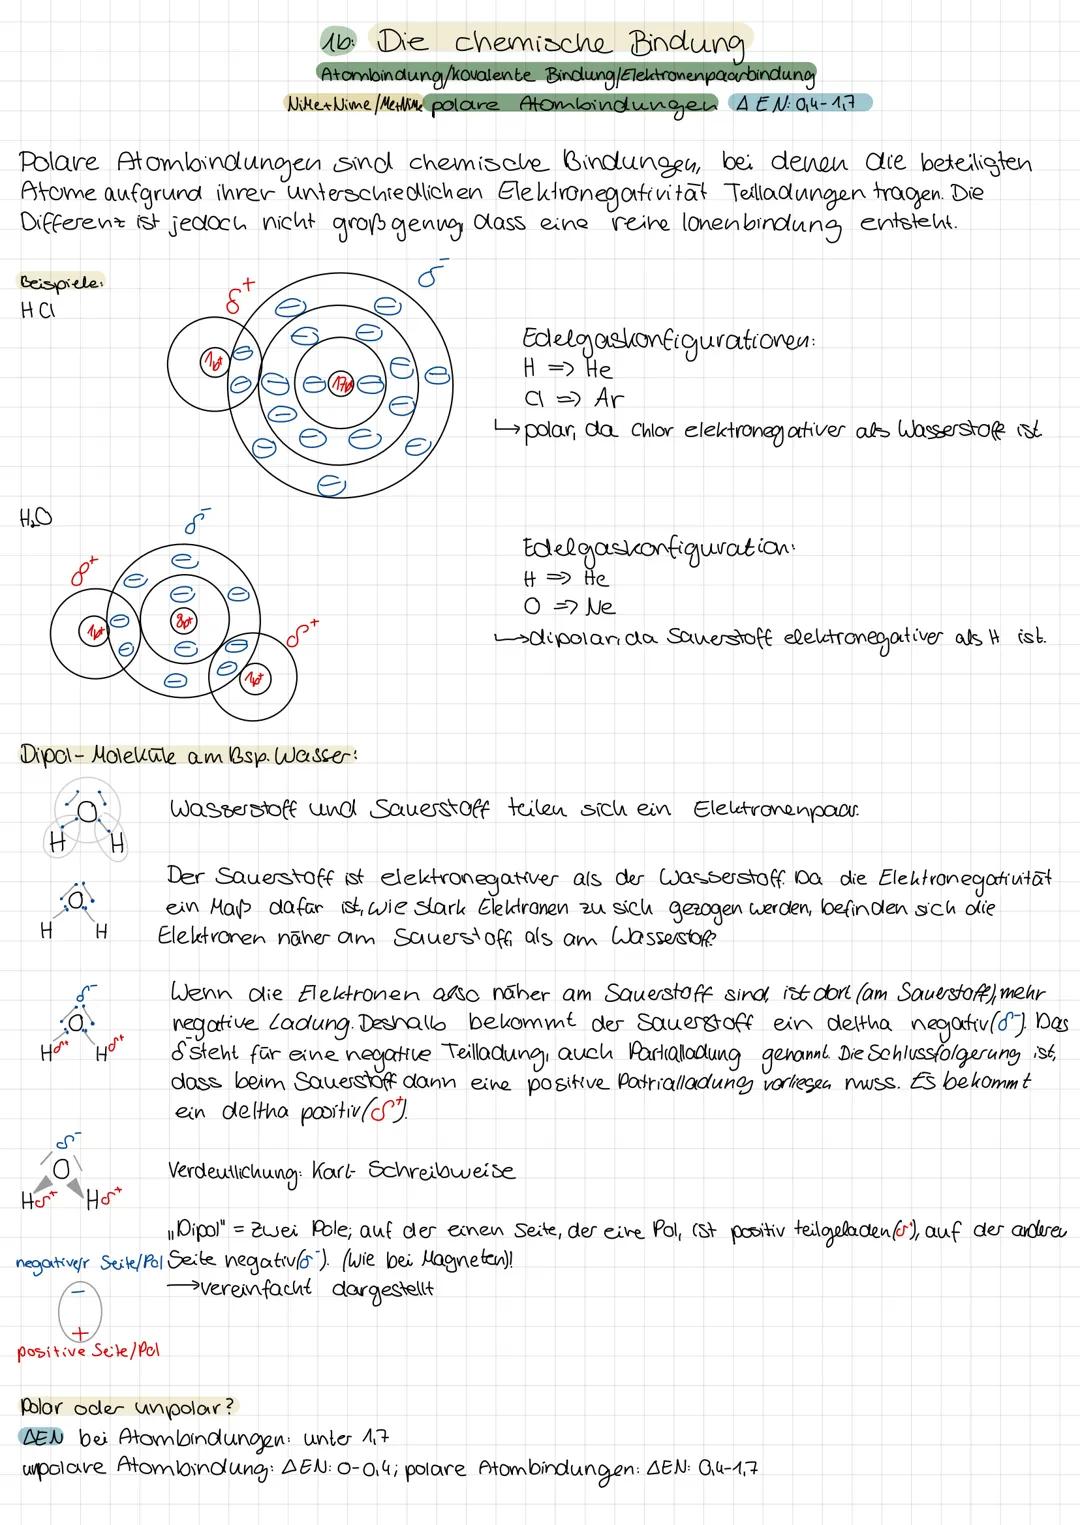 1b: Die chemische Bindung
Atombindung/kovalente Bindung/Elektronenpaarbindung
NiMe+Nime/Me+NiMe polare Atombindungen ΔEN: 0,4-1,7
Polare Atombindungen sind chemische Bindungen, bei denen die beteiligten
Atome aufgrund ihrer unterschiedlichen Elektronegativität Teilladungen tragen. Die
Differenz ist jedoch nicht groß genug, dass eine reine Ionenbindung entsteht.
Beispiele:
HCl
δ+
δ-
1p+
17p+
Edelgaskonfigurationen:
H => He
Cl => Ar
↳polar, da Chlor elektronegativer als Wasserstoff ist.
H₂O
δ-
δ+
1p+
8p+
δ+
1p+
Edelgaskonfiguration:
H => He
O => Ne
↳dipolar, da Sauerstoff elektronegativer als H ist.
Dipol-Moleküle am Bsp. Wasser:
O
H H
Wasserstoff und Sauerstoff teilen sich ein Elektronenpaar.
O
H H
Der Sauerstoff ist elektronegativer als der Wasserstoff. Da die Elektronegativität
ein Maß dafür ist, wie stark Elektronen zu sich gezogen werden, befinden sich die
Elektronen näher am Sauerstoff, als am Wasserstoff.
δ-
O
Hδ+ Hδ+
Wenn die Elektronen also näher am Sauerstoff sind, ist dort (am Sauerstoff), mehr
negative Ladung. Deshalb bekommt der Sauerstoff ein deltha negativ(δ-). Das
δ-steht für eine negative Teilladung, auch Partialladung genannt. Die Schlussfolgerung ist,
dass beim Sauerstoff dann eine positive Patrialladung vorliegen muss. Es bekommt
ein deltha positiv(δ+).
δ-
O
Hδ+ Hδ+
Verdeutlichung: Karl- Schreibweise
„Dipol" = Zwei Pole; auf der einen Seite, der eine Pol, ist positiv teilgeladen(δ+), auf der anderen
negative/r Seite/Pol Seite negativ(δ-). (Wie bei Magneten)!
→vereinfacht dargestellt
-
+
positive Seite/Pol
Polar oder unpolar?
ΔEN bei Atombindungen: unter 1,7
unpolare Atombindung: ΔEN: 0-0,4; polare Atombindungen: ΔEN: 0,4-1,7